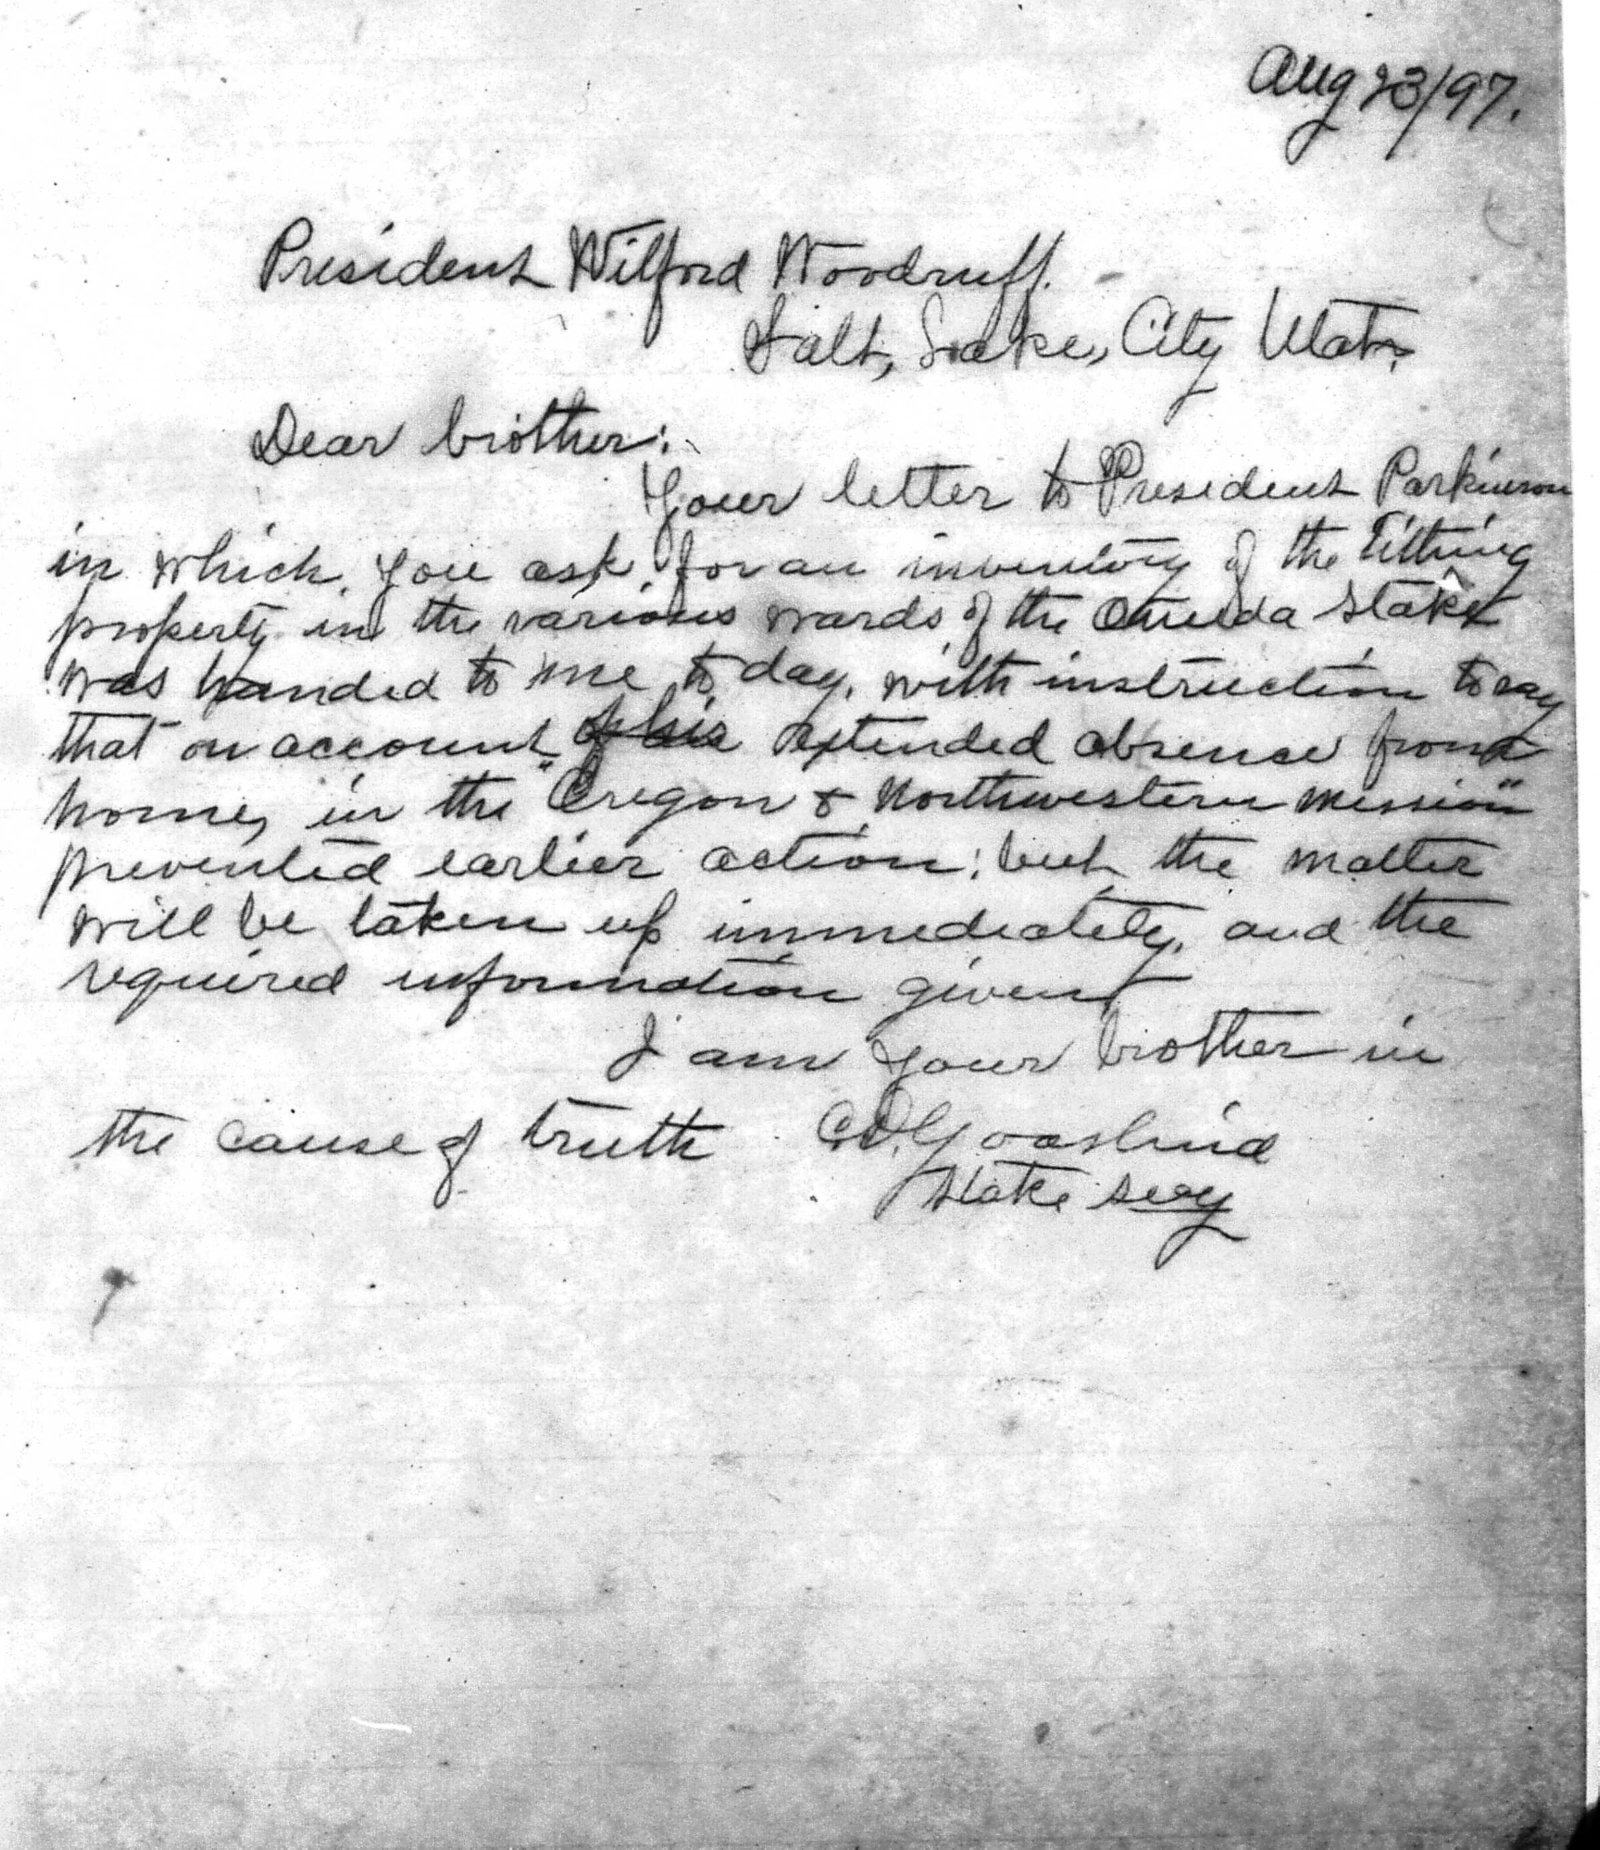 Aug 23/97.
President Wilford Woodruff.
Salt, Lake, City Utah.
Dear brother:
Your letter to President Parkinson
in which you ask for an inventory of the Tithing
property in the various wards of the Oneida Stake
was handed to me to day, with instruction to say
that on account of his extended absence from
home, in the "Oregon & Northwestern Mission"
prevented earlier action; but the matter
will be taken up immediately, and the
required information given
I am your brother in
the cause of truth C.D. Goaslind
Stake Secy